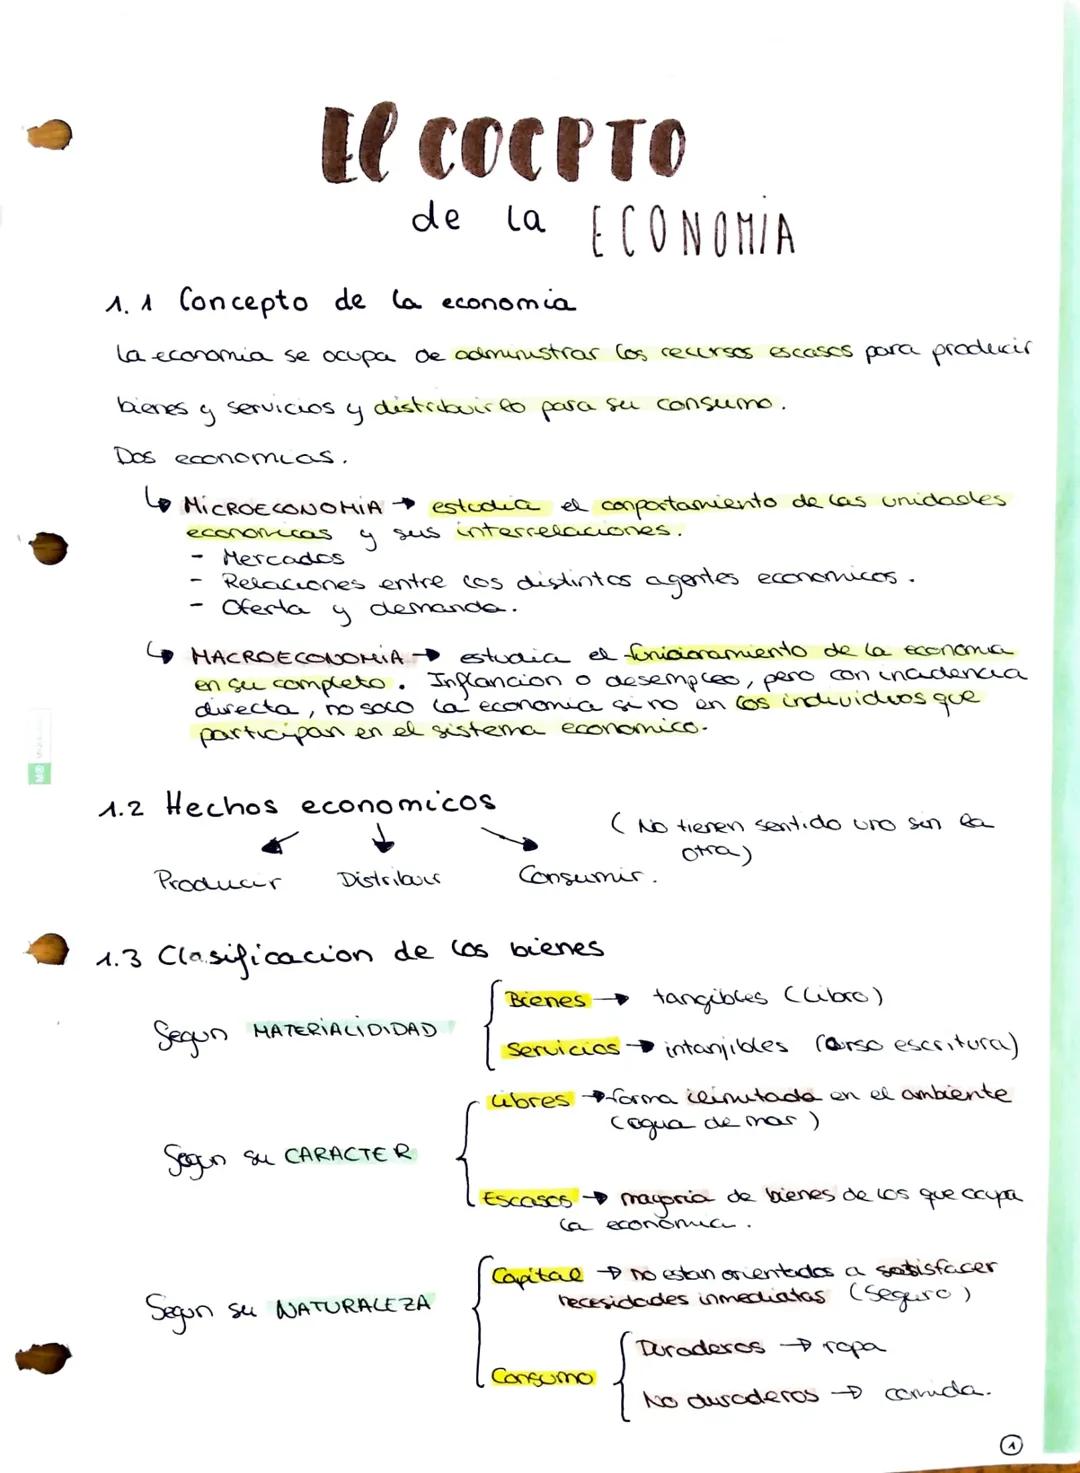 El COCPTO
de la ECONOMÍA
1.1 Concepto de la economia
La economia se ocupa de administrar los recursos escasos para producir
bienes y servicios y distribuirlo para su consumo.
Dos economias.
↳ MiCROECONOMiA → estudia el comportamiento de las unidades
economicas y sus interrelaciones.
- Mercados
- Relaciones entre los distintos agentes economicos.
- Oferta y demanda.
↳ MACROECONOMiA → estudia el funcionamiento de la economia
en su completo. Inflancion o desempleo, pero con incidencia
directa, no solo la economia si no en los individuos que
participan en el sistema economico.
1.2 Hechos economicos
(No tienen sentido uno sin la
otra)
Producir Distribuir Consumir.
1.3 Clasificacion de los bienes
Segun MATERIALIDIDAD
Bienes → tangibles (Libro)
Servicios → intanjibles (Curso escritura)
Segun su CARACTER
Libres → forma ilimitada en el ambiente
(agua de mar)
Escasos → mayoria de bienes de los que ocupa
la economia.
Segun su NATURALEZA
Capital → no estan orientados a satisfacer
necesidades inmediatas (Seguro)
Consumo
Duraderos → ropa
No duraderos → comida.
1